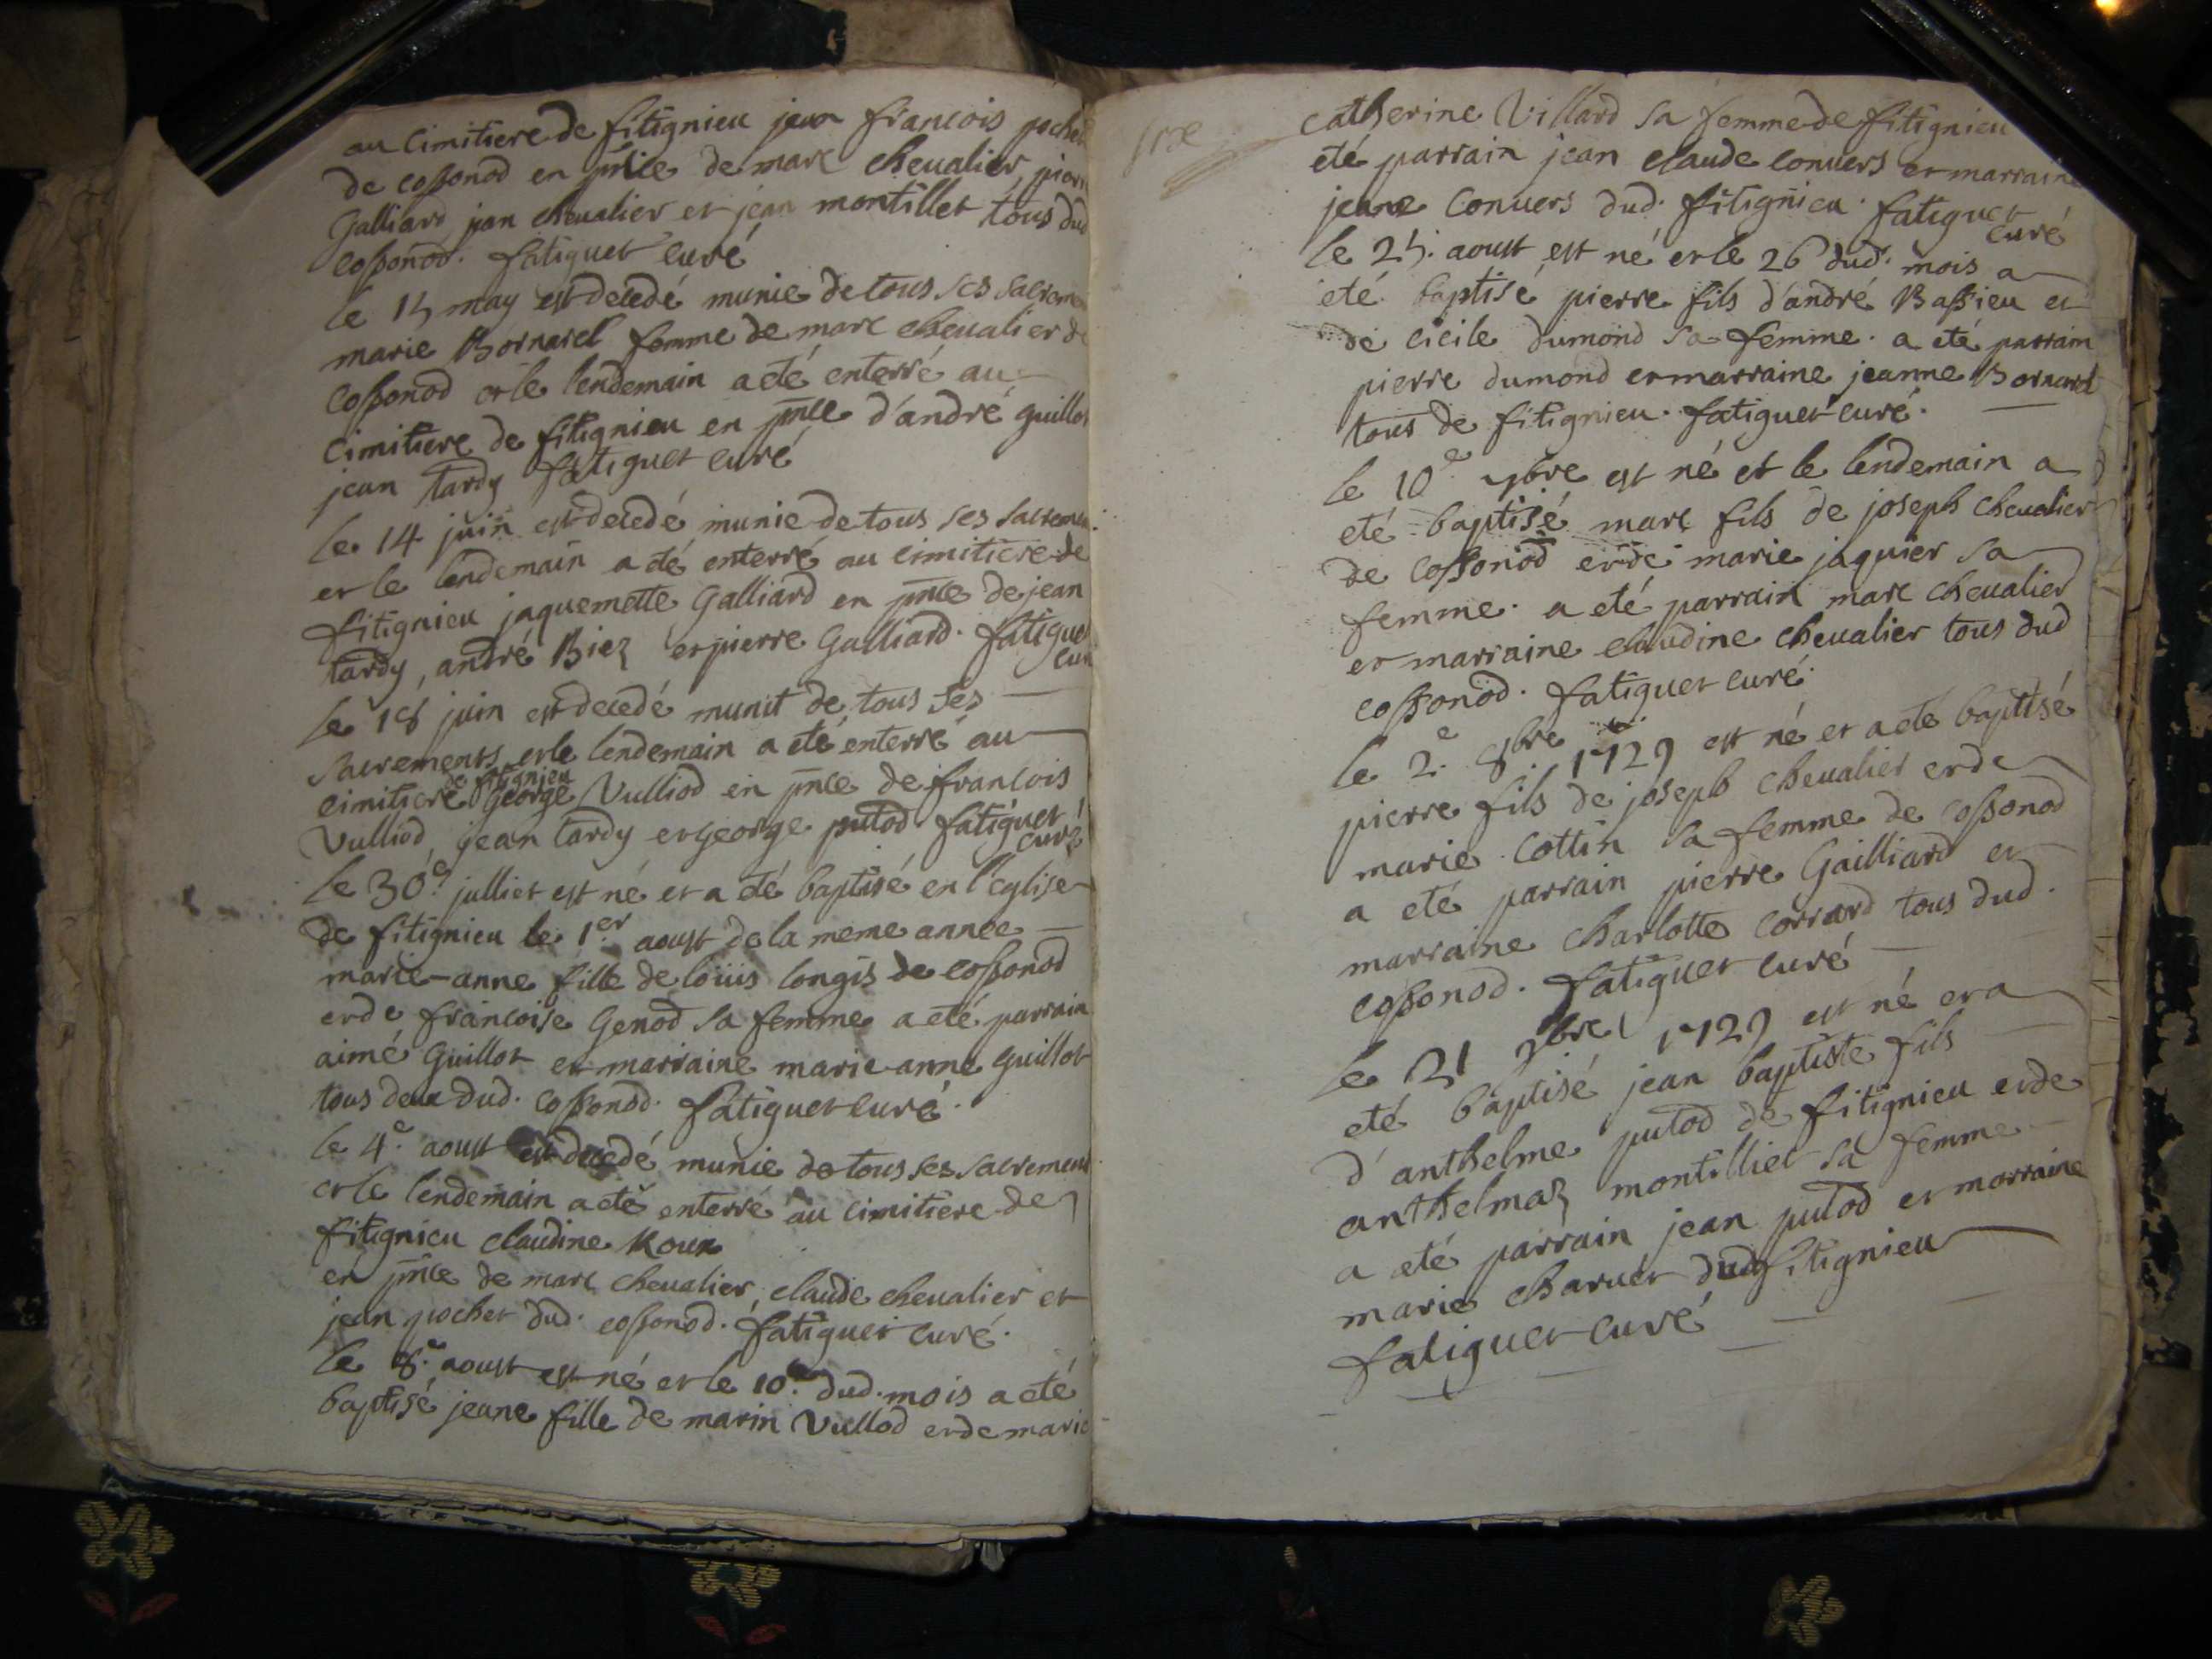 au Cimitiere de fitignieu jean francois pochet
de cossonod en pnce de marc chevalier, pierre
Galliard jan chevalier et jean montillet tous dud
cossonod. fatiguet curé
le 15 may est decedé munie de tous ses sacrements
marie Bornarel femme de marc chevalier de
Cossonod et le lendemain a eté enterré au
Cimitiere de fitignieu en pnce d'andré guillot
jean tardy fatiguet curé
le 14 juin est decedé munie de tous ses sacrements
et le lendemain a eté enterré au cimitiere de
fitignieu jaquemette Galliard en pnce de jean
tardy, andré Biez et pierre Galliard. fatiguet
curé
le 18 juin est decedé munit de tous ses
sacrements et le lendemain a eté enterré au
de fitignieu
cimitiere George Vulliod en pnce de francois
Vulliod, jean tardy et george putod. fatiguet
curé
le 30e julliet est né et a eté baptisé en l'eglise
de fitignieu le 1er aoust de la meme année
marie-anne fille de loüis longis de cossonod
et de francoise Genod sa femme a eté parrain
aimé Guillot et marraine marie anne guillot
tous deux dud. cossonod. fatiguet curé.
le 4e. aoust est decedé munie de tous ses sacrements
et le lendemain a eté enterré au cimitiere de
fitignieu claudine Roux
en pnce de marc chevalier, claude chevalier et
jean pochet dud. cossonod. fatiguet curé.
le 8e. aoust est né et le 10e. dud. mois a eté
baptisé jeane fille de marin Vullod et de marie
catherine Villard sa femme de fitignieu
eté parrain jean claude convers et marraine
jeane Convers dud. fitignieu. fatiguet
curé
le 25. aoust est né et le 26 dud. mois a
eté baptisé pierre fils d'andré Bassieu et
de cicile dumond sa femme. a eté parrain
pierre dumond et marraine jeanne Bornarel
tous de fitignieu. fatiguet curé.
le 10e 7bre est né et le lendemain a
eté baptisé marc fils de joseph chevalier
de cossonod et de marie jaquier sa
femme. a eté parrain marc chevalier
et marraine claudine chevalier tous dud
cossonod. fatiguet curé.
le 2e. 8bre 1729 est né et a eté baptisé
pierre fils de joseph chevalier et de
marie Cottin sa femme de cossonod
a eté parrain pierre Gailliard et
marraine charlotte Corrard tous dud.
cossonod. fatiguet curé
le 21 9bre 1729 est né et a
eté baptisé jean baptiste fils
d'anthelme putod de fitignieu et de
anthelmaz montilliet sa femme
a eté parrain jean putod et marraine
marie charvet dud fitignieu
fatiguet curé